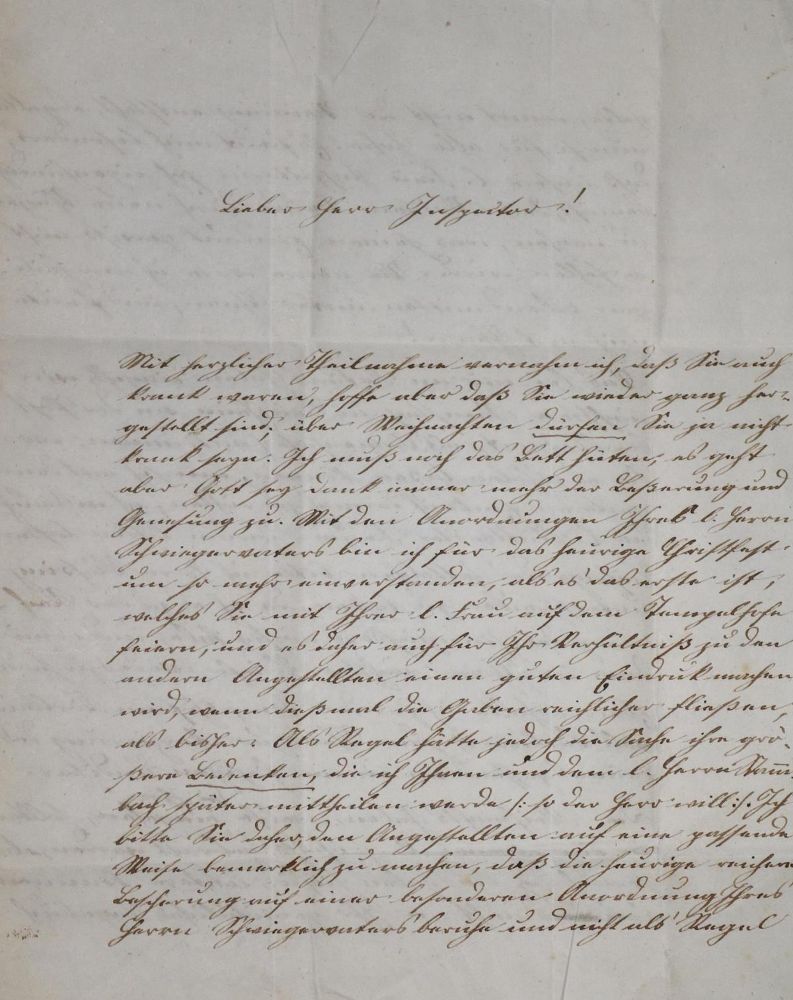 Lieber Herr Inspector!
Mit herzlicher Theilnahme vernahm ich, daß Sie auch
krank waren, hoffe aber daß Sie wieder ganz her-
gestellt sind; über Weihnachten dürfen Sie ja nicht
krank seyn. Ich muß noch das Bett hüten, es geht
aber Gott sey dank immer mehr der Beßerung und
Genesung zu. Mit den Anordnungen Ihres l. Herrn
Schwiegervaters bin ich für das heurige Christfest
um so mehr einverstanden, als es das erste ist,
welches Sie mit Ihrer l. Frau auf dem Tempelhofe
feiern, und es daher auch für Ihr Verhältniß zu den
andern Angestellten einen guten Eindruck machen
wird, wenn dießmal die Gaben reichlicher fließen,
als bisher. Als Regel hätte jedoch die Sache ihre grö-
ßere Bedenken, die ich Ihnen und dem l. Herrn
bach später mittheilen werde /: so der Herr will :/. Ich
bitte Sie daher, den Angestellten auf eine passende
Weise bemerklich zu machen, daß die heurige reichere
Bescherung auf einer besonderen Anordnung Ihres
Herrn Schwiegervaters beruhe und nicht als Regel